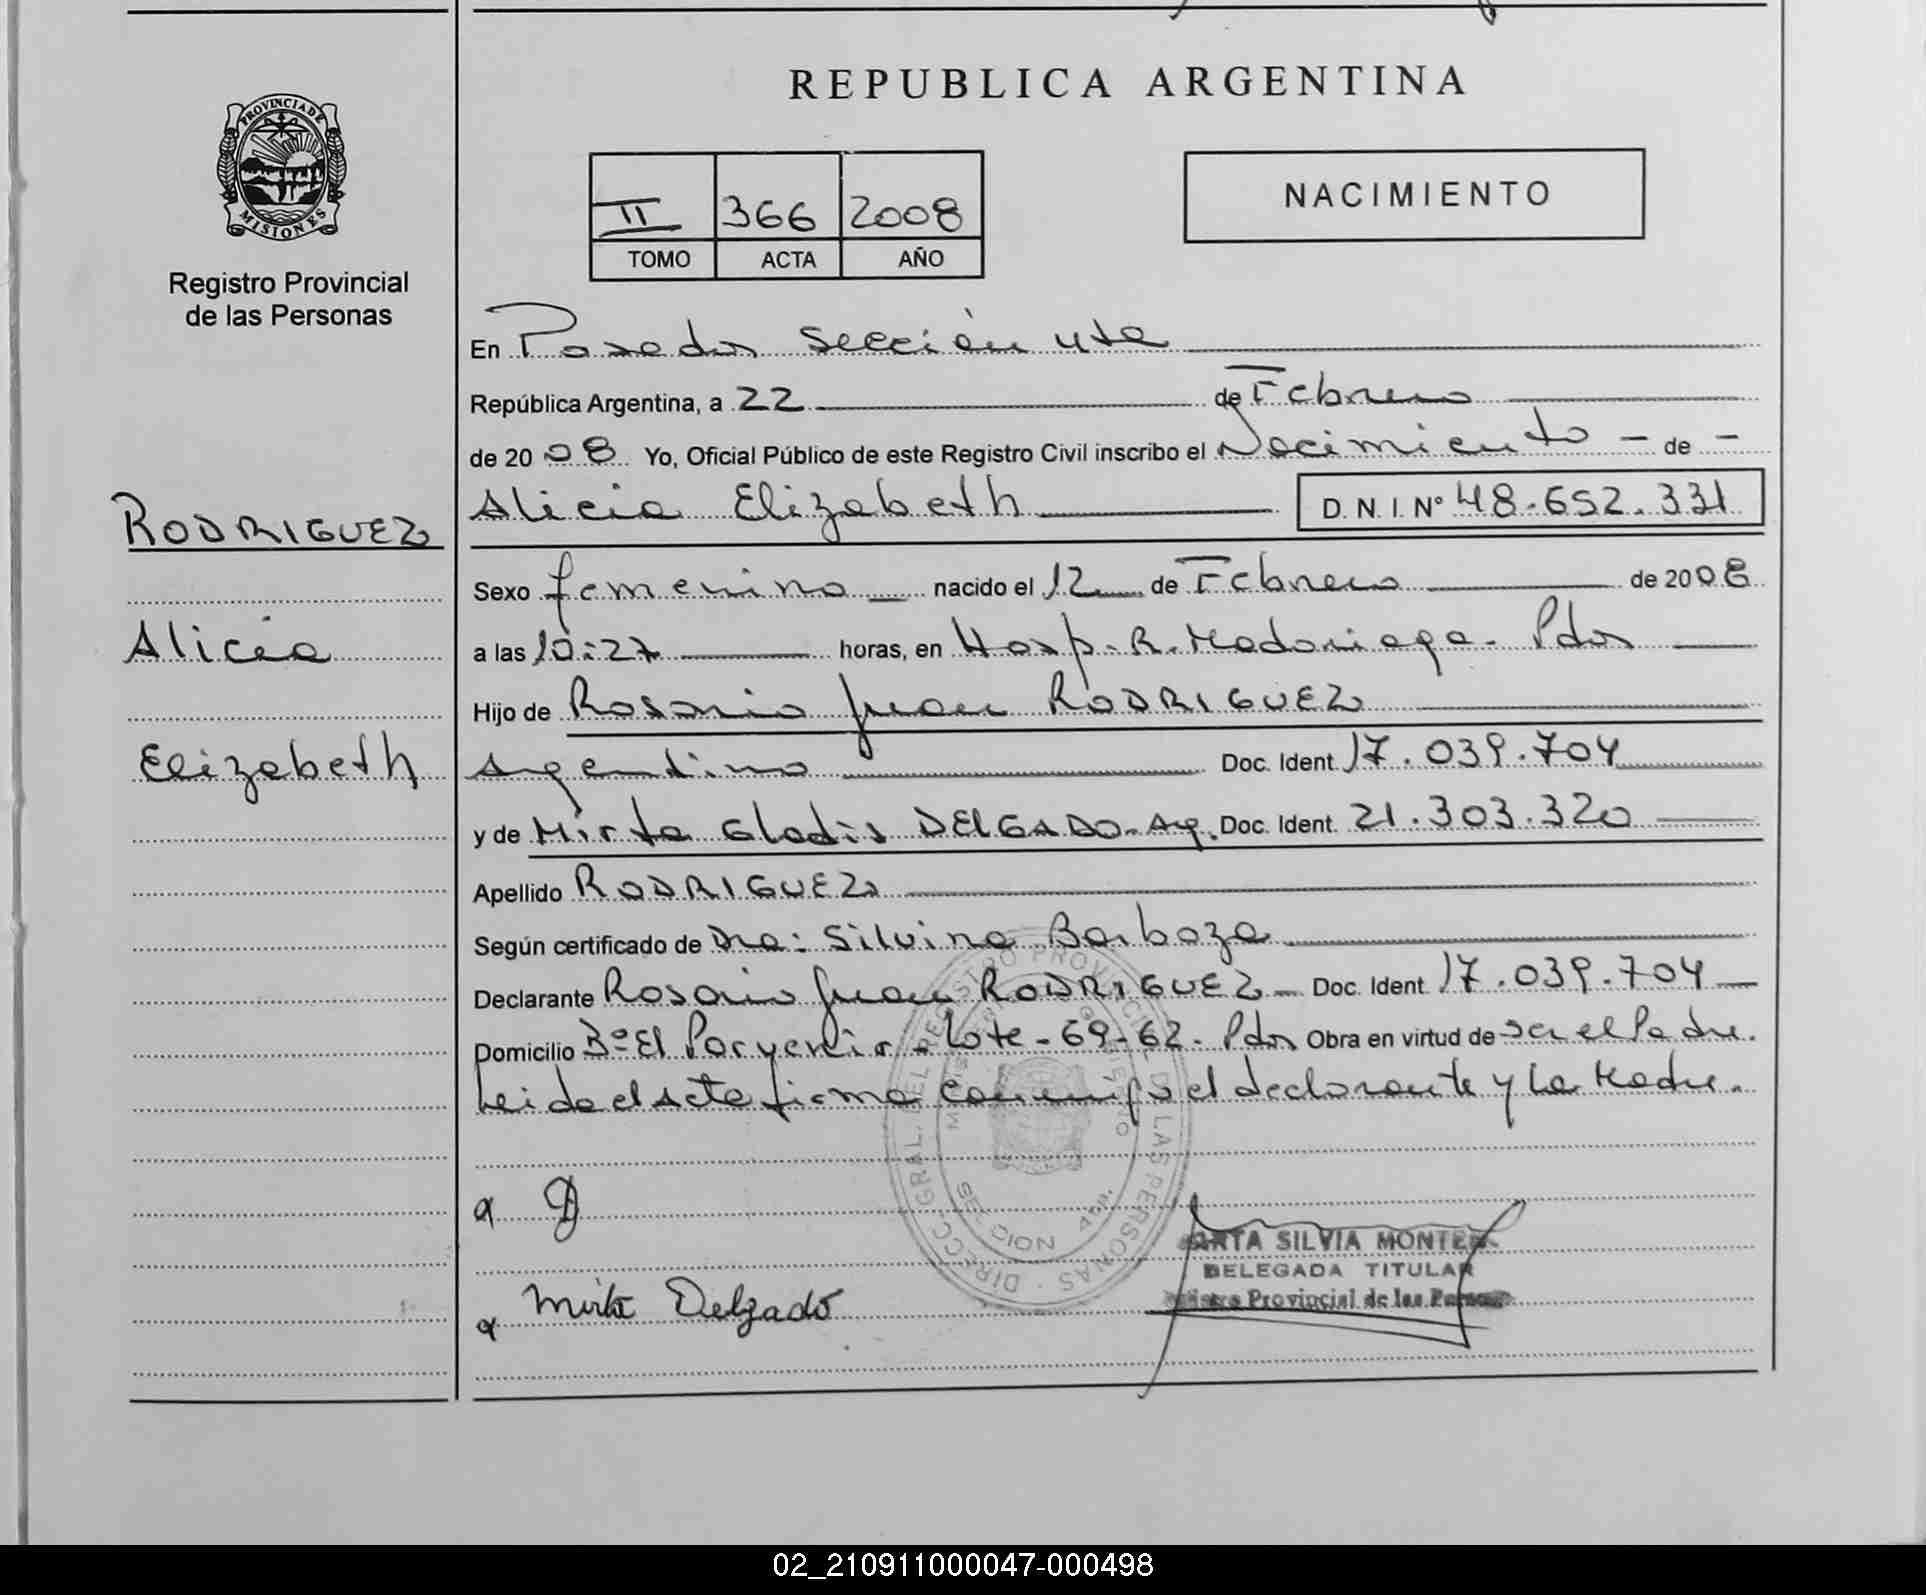 REPUBLICA ARGENTINA
PROVINCIA DE
MISIONES
Registro Provincial
de las Personas
II 366 2008
TOMO ACTA AÑO
NACIMIENTO
En Posadas Sección 4ta
República Argentina, a 22 de Febrero
de 2008 Yo, Oficial Público de este Registro Civil inscribo el Nacimiento - de -
Alicia Elizabeth D.N.I.Nº 48.652.331
RODRIGUEZ
Alicia
Elizabeth
Sexo femenino nacido el 12 de Febrero de 2008
a las 10:27 horas, en Hosp. R. Madariaga. Pdas
Hijo de Rosario Juan RODRIGUEZ
Argentino Doc. Ident. 17.039.704
y de Mirta Gladis DELGADO. Arg. Doc. Ident. 21.303.320
Apellido RODRIGUEZ
Según certificado de Dra: Silvina Barboza
Declarante Rosario Juan RODRIGUEZ Doc. Ident. 17.039.704
Domicilio Bº El Porvenir. Lote-69-62. Pdas Obra en virtud de ser el Padre.
Leida el Acta firma conmigo el declarante y La Madre.
Mirta Delgado
SILVIA
DELEGADA TITULAR
Provincial de las
02_210911000047-000498